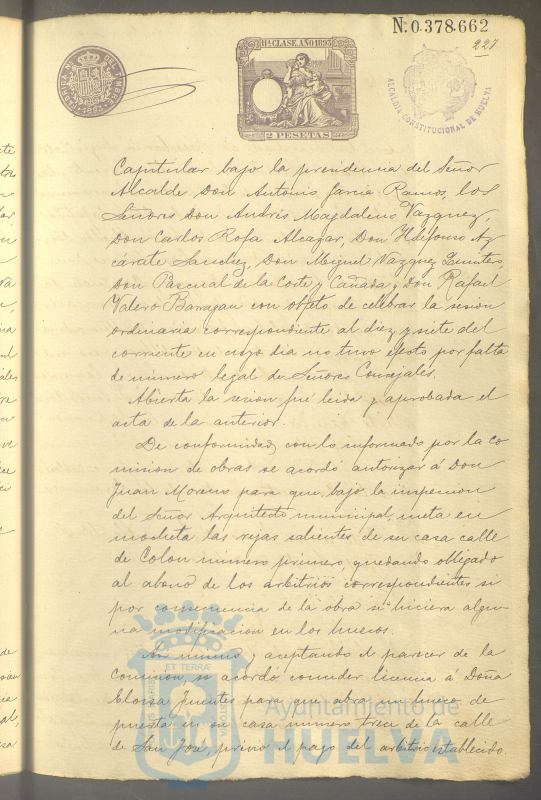 Nº 0.378.662
227
11ª CLASE. AÑO 1893
2 PESETAS
ALCALDIA CONSTITUCIONAL DE HUELVA
Capitular bajo la presidencia del Señor
Alcalde Don Antonio Garcia Ramos, los
Señores Don Andrés Magdaleno Vazquez,
Don Carlos Rofa Alcazar, Don Ildefonso Az
cárate Sanchez, Don Miguel Vazquez Fuentes
Don Pascual de la Corte y Cañada y Don Rafael
Valero Barragan con objeto de celebrar la sesion
ordinaria correspondiente al diez y siete del
corriente en cuyo dia no tuvo efecto por falta
de número legal de Señores Concejales.
Abierta la sesion fué leida y aprobada el
acta de la anterior.
De conformidad con lo informado por la co
mision de obras se acordó autorizar á Don
Juan Moreno para que, bajo la inspeccion
del Señor Arquitecto municipal, meta en
mocheta las rejas salientes de su casa calle
de Colon número primero, quedando obligado
al abono de los arbitrios correspondientes si
por consecuencia de la obra se hiciera algu-
na modificacion en los huecos.
Asi mismo y aceptando el parecer de la
Comision, se acordó conceder licencia á Doña
Eloisa Fuentes para que abra un hueco de
puerta en su casa número trece de la calle
de San José, prévio el pago del arbitrio establecido.
Ayuntamiento de
HUELVA